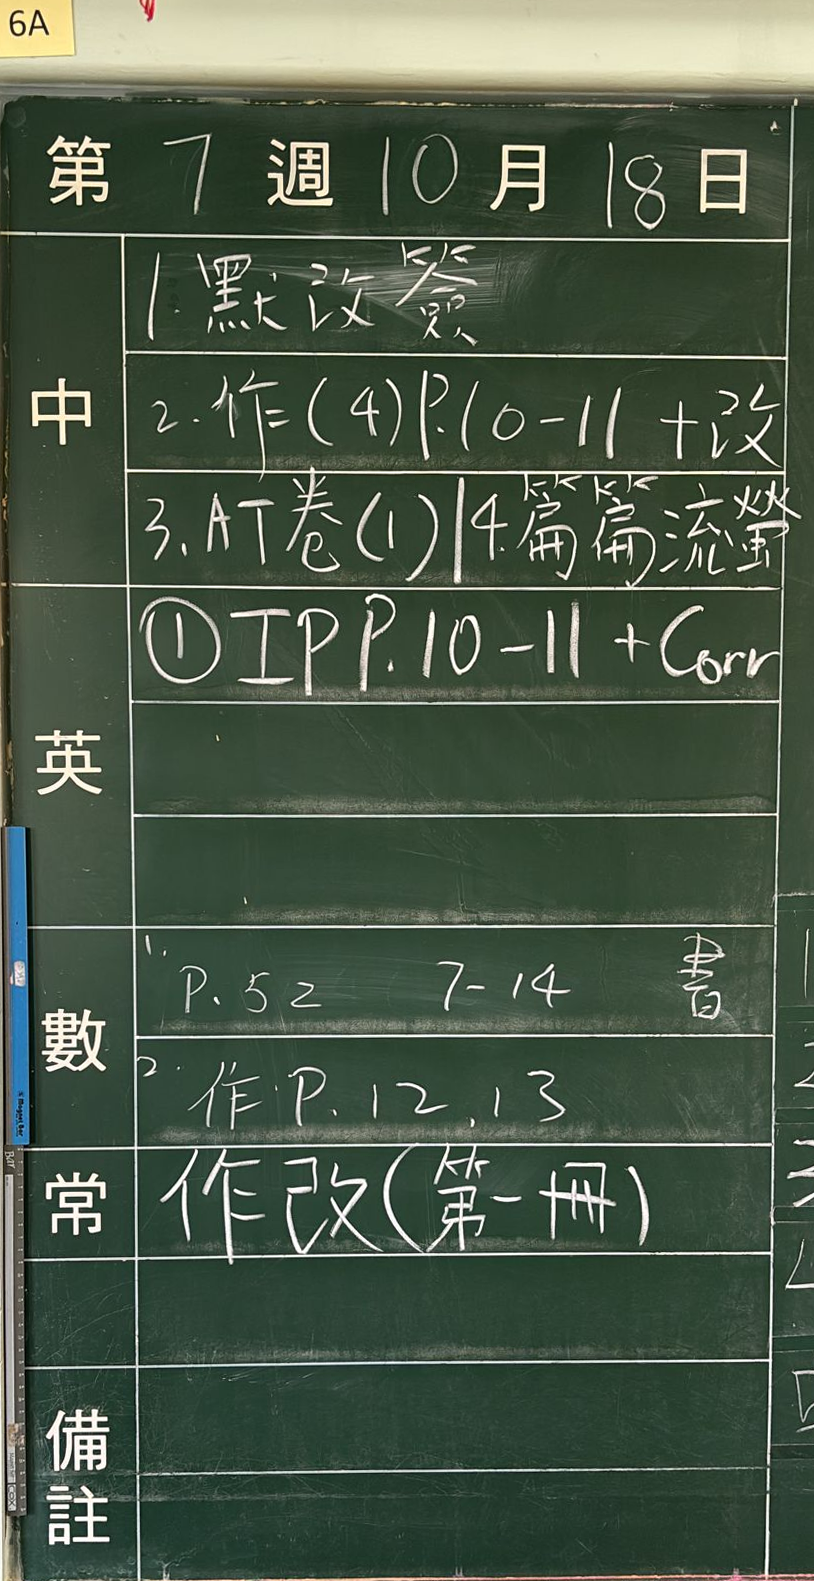 6A
第 7 週 10 月 18 日
中
1. 默改簽
2. 作(4)P.10-11 +改
3. AT卷(1) | 4. 篇篇流螢
英
① IP P.10-11 + Corr
數
1. P.52 7-14 書
2. 作 P.12,13
常
作改(第一冊)
備註